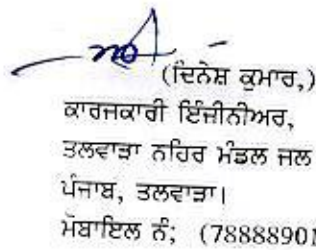 (ਦਿਨੇਸ਼ ਕੁਮਾਰ,)
ਕਾਰਜਕਾਰੀ ਇੰਜੀਨੀਅਰ,
ਤਲਵਾੜਾ ਨਹਿਰ ਮੰਡਲ ਜਲ
ਪੰਜਾਬ, ਤਲਵਾੜਾ।
ਮੋਬਾਇਲ ਨੰ; (78888901